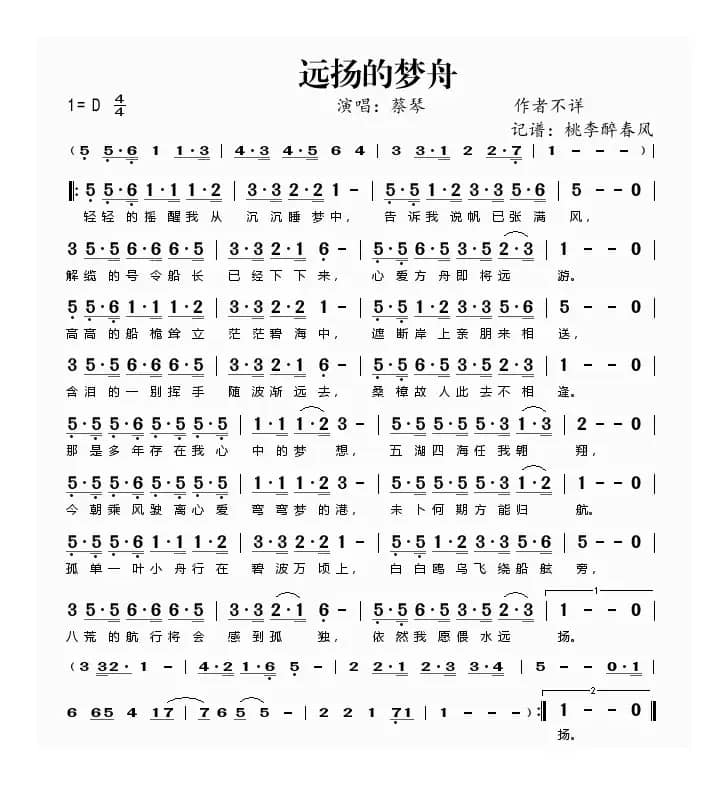 远扬的梦舟
1= D 4/4 演唱：蔡琴 作者不详
记谱：桃李醉春风
( 5 5·6 1 1·3 | 4·3 4·5 6 4 | 3 3·1 2 2·7 | 1 - - - ) |
‖: 5 5·6 1·1 1·2 | 3·3 2·2 1 - | 5·5 1·1 3·3 5·6 | 5 - - 0 |
轻轻的摇醒我从 沉沉睡梦中， 告诉我说帆已张满 风，
3 5·5 6·6 6·5 | 3·3 2·1 6 - | 5·5 6·5 3·5 2·3 | 1 - - 0 |
解缆的号令船长 已经下下来， 心爱方舟即将远 游。
5 5·6 1·1 1·2 | 3·3 2·2 1 - | 5·5 1·2 3·3 5·6 | 5 - - 0 |
高高的船桅耸立 茫茫碧海中， 遮断岸上亲朋来相 送，
3 5·5 6·6 6·5 | 3·3 2·1 6 - | 5·5 6·5 3·5 2·3 | 1 - - 0 |
含泪的一别挥手 随波渐远去， 桑樟故人此去不相 逢。
5·5 5·6 5·5 5·5 | 1·1 1·2 3 - | 5·5 5·5 5·3 1·3 | 2 - - 0 |
那是多年存在我心 中的梦想， 五湖四海任我翱 翔，
5·5 5·6 5·5 5·5 | 1·1 1·2 3 - | 5·5 5·5 5·3 1·2 | 1 - - 0 |
今朝乘风驶离心爱 弯弯梦的港， 未卜何期方能归 航。
5·5 5·6 1·1 1·2 | 3·3 2·2 1 - | 5·5 1·2 3·3 5·6 | 5 - - 0 |
孤单一叶小舟行在 碧波万顷上， 白白鸥鸟飞绕船舷 旁，
3 5·5 6·6 6·5 | 3·3 2·1 6 - | 5·5 6·5 3·5 2·3 | 1 1 - - 0 |
八荒的航行将会 感到孤 独， 依然我愿偎水远 扬。
( 3 32· 1 - | 4·2 1·6 5 - | 2 2·1 2·3 3·4 | 5 - - 0·1 |
6 65 4 17 | 765 5 - | 2 2 1 71 | 1 - - - ) :‖ 2 1 - - 0 ‖
扬。